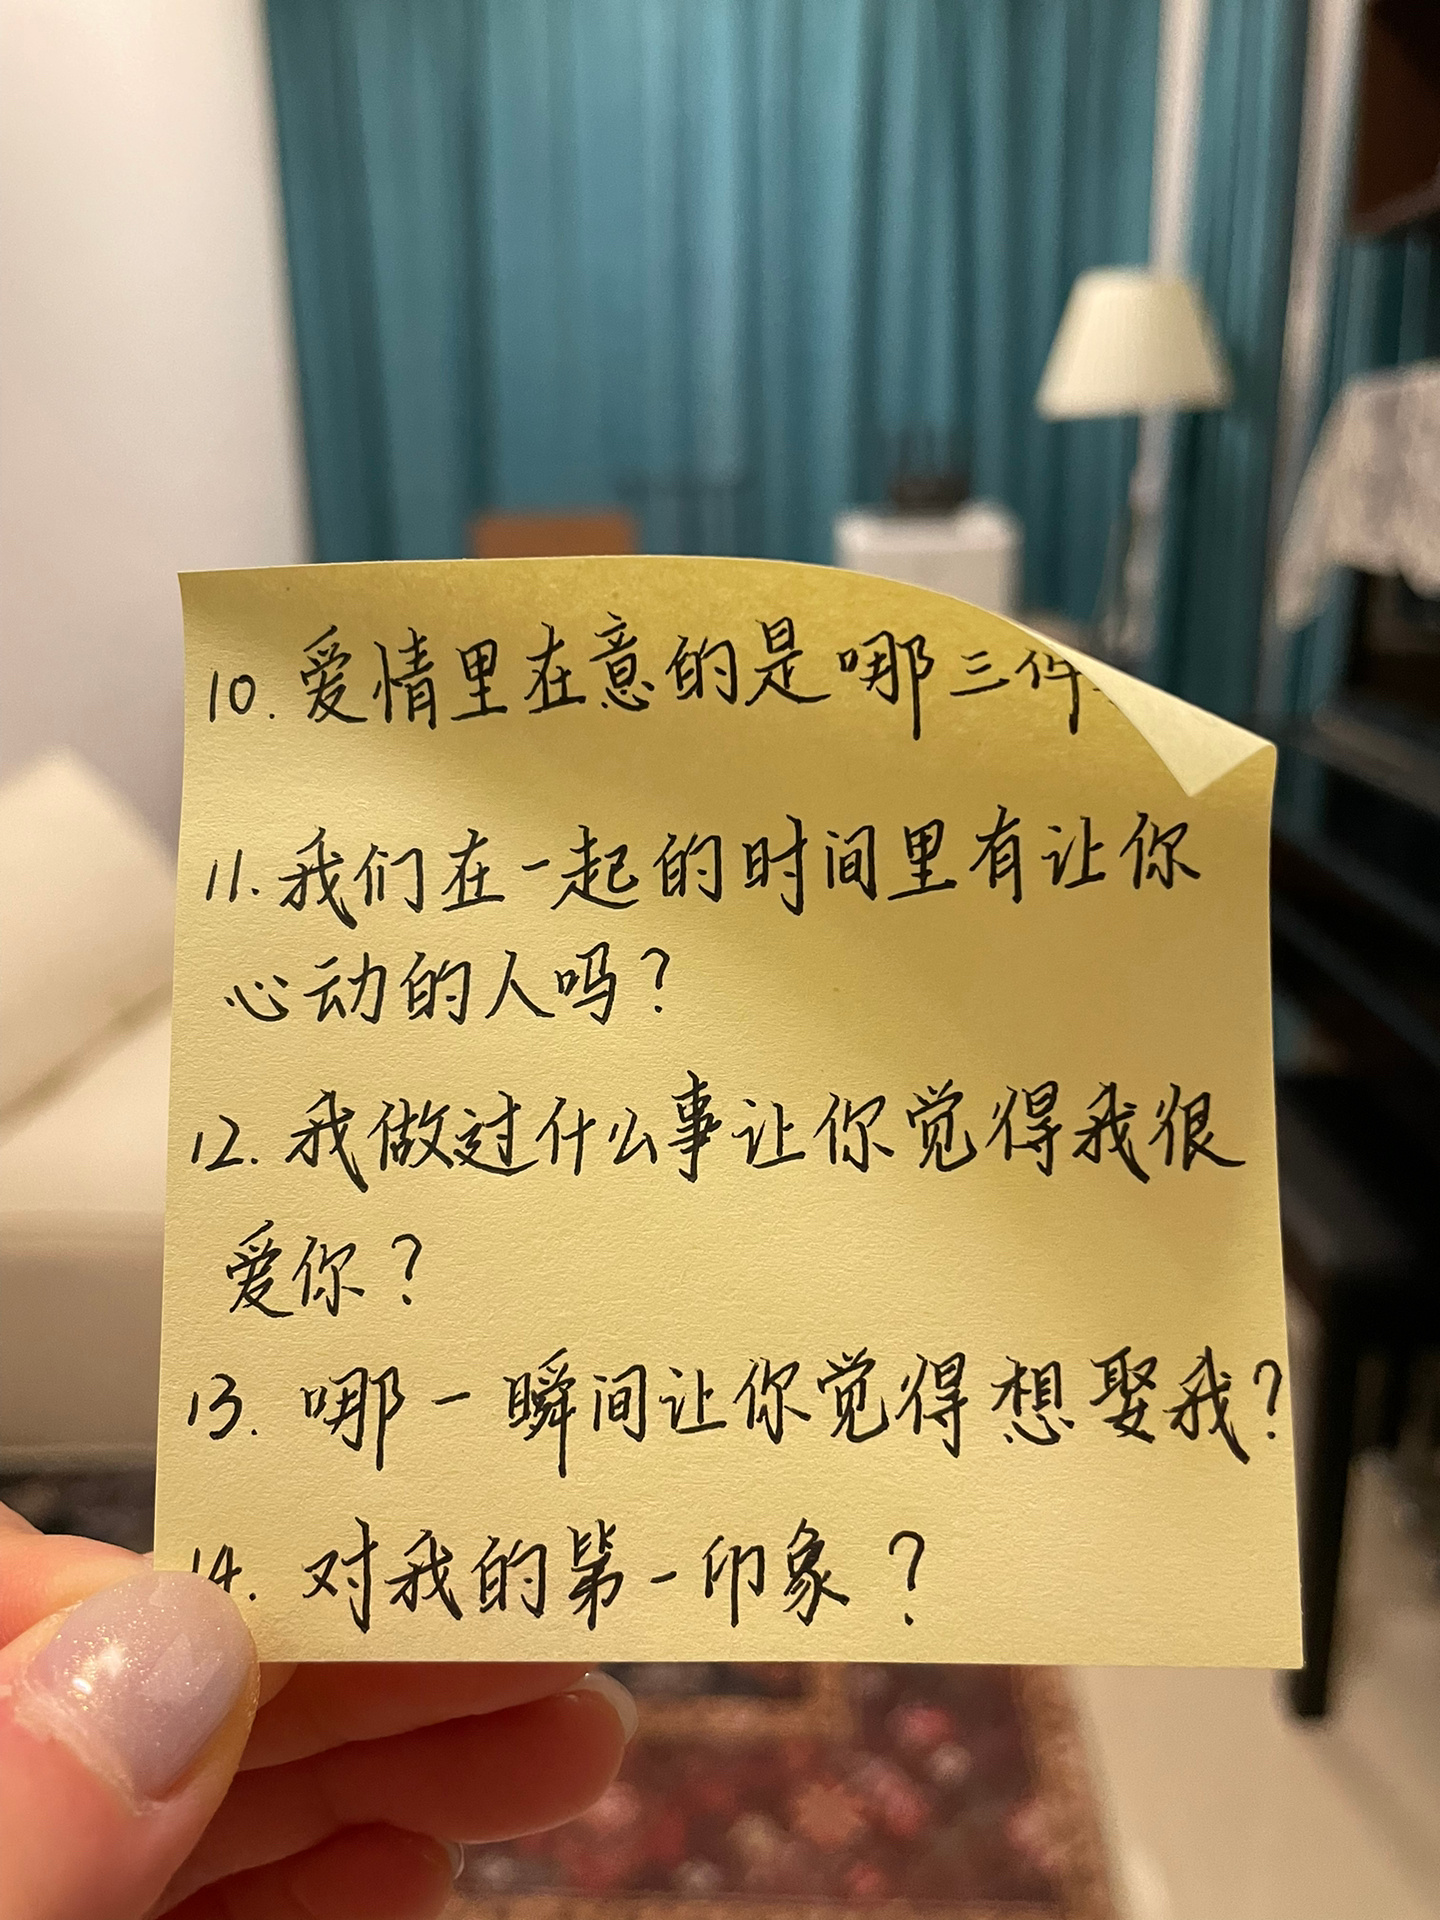 10. 爱情里在意的是哪三件
11. 我们在一起的时间里有让你
心动的人吗？
12. 我做过什么事让你觉得我很
爱你？
13. 哪一瞬间让你觉得想娶我？
14. 对我的第一印象？